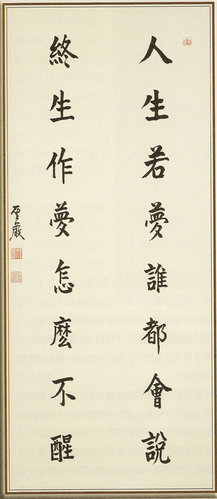 人生若夢誰都會說
終生作夢怎麼不醒
聖嚴